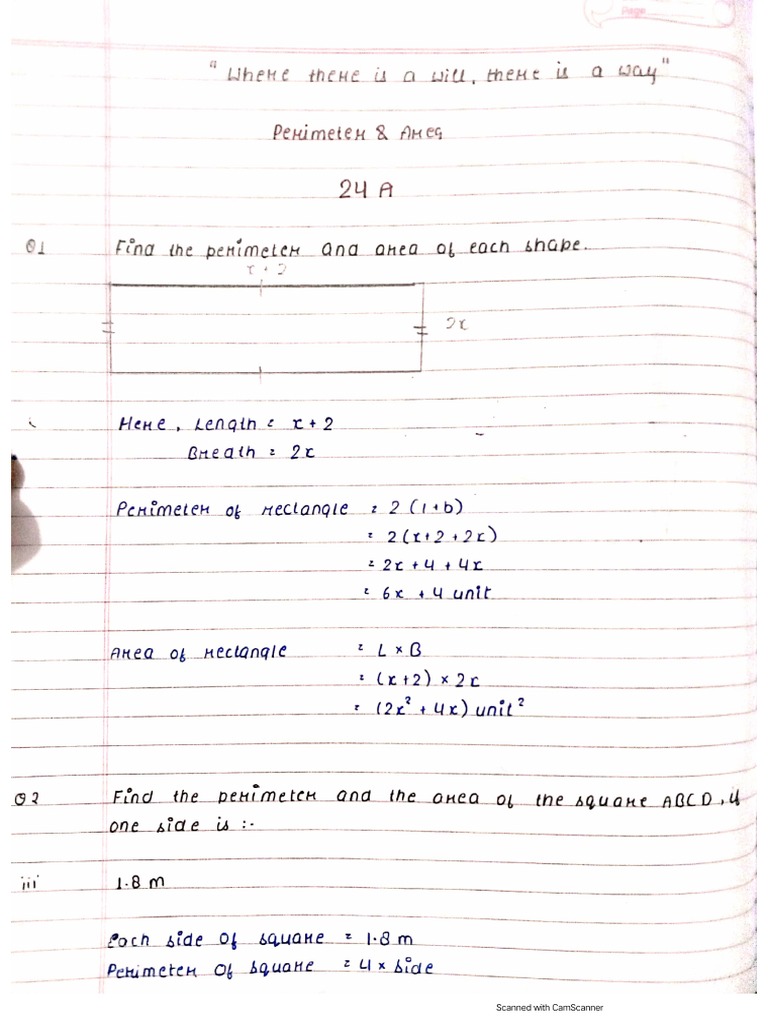 Page
"Where there is a will, there is a way"
Perimeter & Area
24 A
Q1 Find the perimeter and area of each shape.
x + 2
2x
i Here, Length = x + 2
Breath = 2x
Perimeter of rectangle = 2 (l+b)
= 2(x+2 + 2x)
= 2x + 4 + 4x
= 6x + 4 unit
Area of rectangle = L × B
= (x+2) × 2x
= (2x² + 4x) unit²
Q2 Find the perimeter and the area of the square ABCD, if
one side is :-
iii 1.8 m
Each side of square = 1.8 m
Perimeter of square = 4 × side
Scanned with CamScanner